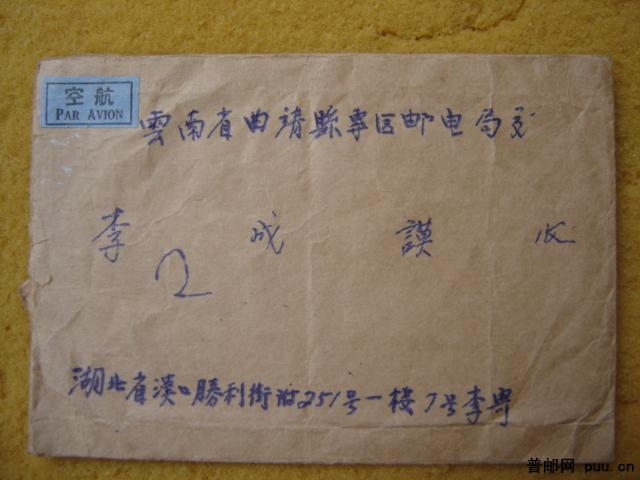 空航
PAR AVION
雲南省曲靖縣專区邮电局交
李成謨收
湖北省漢口勝利街附251号一楼7号李粤
普邮网 puu.cn